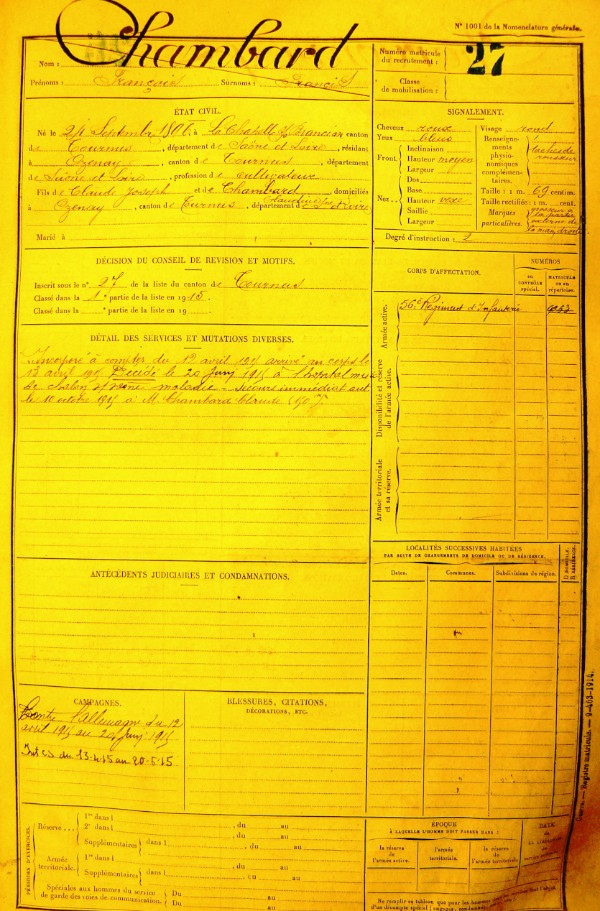 N° 1001 de la Nomenclature générale.
Nom : Chambard
Prénoms : François Surnoms : Francis
Numéro matricule du recrutement : 27
Classe de mobilisation :
ÉTAT CIVIL.
Né le Septembre à La Chapelle canton
de Tournus, département de Saône et Loire, résidant
à Ozenay, canton de Tournus, département
de Saône et Loire, profession de cultivateur
Fils de Claude Joseph et de Chambard, domiciliés
à Ozenay, canton de Turnus, département de
Marié à
SIGNALEMENT.
Cheveux roux Visage rond
Yeux bleus Renseignements physionomiques complémentaires.
Front. Inclinaison
Hauteur moyen
Largeur
Nez. Dos
Base
Hauteur vexe
Saillie
Largeur
Taille : 1 m. 69 centim.
Taille rectifiée : 1 m. cent.
Marques particulières.
Degré d'instruction : 2
DÉCISION DU CONSEIL DE REVISION ET MOTIFS.
Inscrit sous le n° 27 de la liste du canton de Tournus
Classé dans la 1e partie de la liste en 1915.
Classé dans la e partie de la liste en 19
DÉTAIL DES SERVICES ET MUTATIONS DIVERSES.
Incorporé à compter du 12 avril 1915 arrivé au corps le
13 avril 1915 Décédé le 20 Juin 1915 à l'hopital
de maladie - Secours immédiat
le 10 octobre 1915 à M. Chambard Claude (150 F)
CORPS D'AFFECTATION.
NUMÉROS
AU CONTRÔLE spécial.
MATRICULE OU AU répertoire.
Armée active.
56e Régiment d'Infanterie
Disponibilité et réserve de l'armée active.
Armée territoriale et sa réserve.
LOCALITÉS SUCCESSIVES HABITÉES
PAR SUITE DE CHANGEMENTS DE DOMICILE OU DE RÉSIDENCE.
Dates. Communes. Subdivisions du région. D. DOMICILE. R. RÉSIDENCE.
ANTÉCÉDENTS JUDICIAIRES ET CONDAMNATIONS.
CAMPAGNES.
Contre l'Allemagne du 12
avril 1915 au 20 Juin 1915
Int CS du 13-4-15 au 20-6-15
BLESSURES, CITATIONS,
DÉCORATIONS, ETC.
Guerre. — Registre matricule. — 9-403-1914.
PÉRIODES D'EXERCICES.
Réserve...
1re dans l , du au
2e dans l , du au
Supplémentaires dans l , du au
Armée territoriale.
1re dans l , du au
Supplémentaires dans l , du au
Spéciales aux hommes du service de garde des voies de communication. Du au
Du au
ÉPOQUE
À LAQUELLE L'HOMME DOIT PASSER DANS :
la réserve de l'armée active.
l'armée territoriale.
la réserve de l'armée territoriale.
DATE